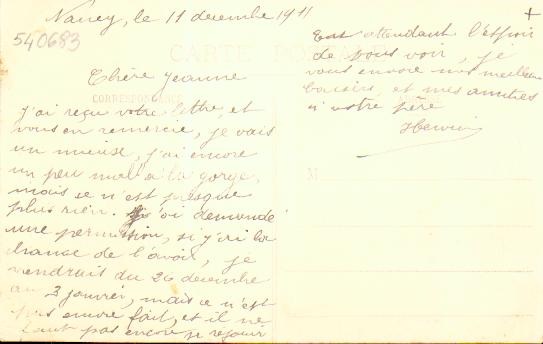 Nancy, le 11 decembre 1911
540683
CARTE POSTALE
Chère Jeanne
CORRESPONDANCE
J'ai reçu votre lettre, et
vous en remercie, je vais
un mieux, j'ai encore
un peu mal à la gorge,
mais se n'est presque
plus rien. J'ai demandé
une permission, si j'ai la
chance de l'avoir, je
viendrait du 26 decembre
au 3 janvier, mais ce n'est
pas encore fait, et il ne
faut pas encore se rejouir
En attendant l'espoir
de vous voir, je
vous envoie mes meilleurs
baisers, et mes amitiés
a votre père
M